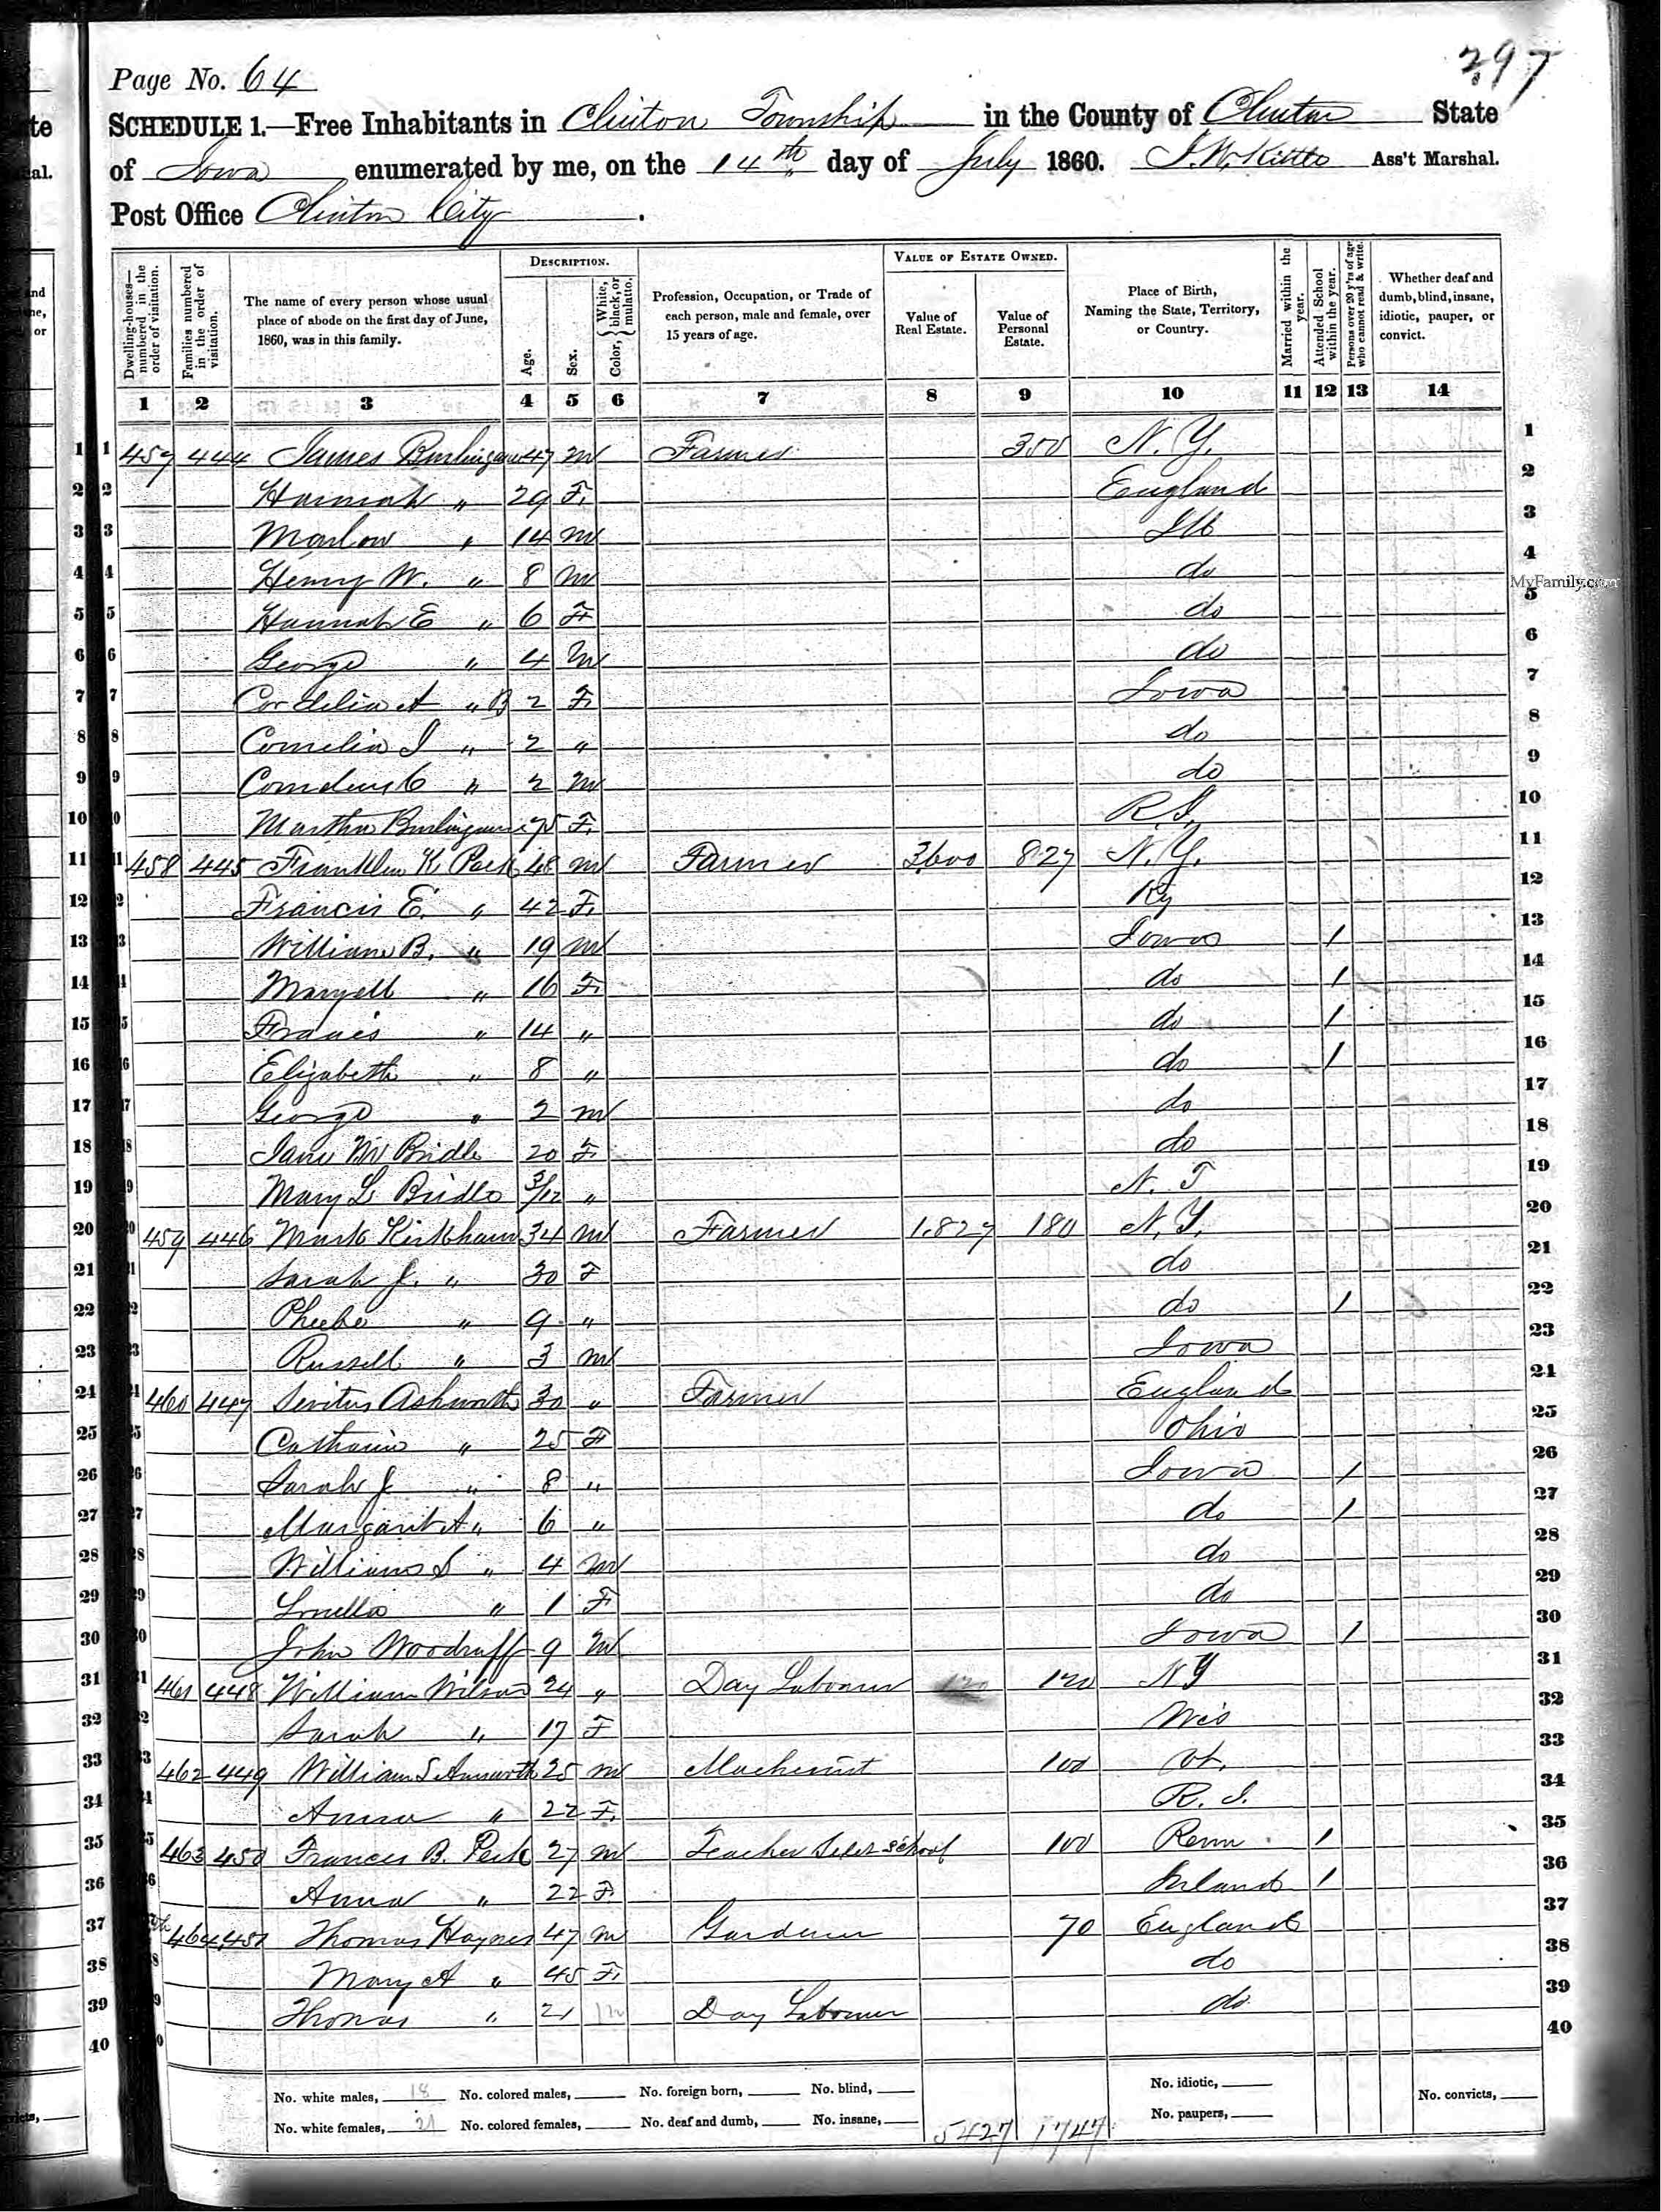 297
Page No. 64
SCHEDULE 1.—Free Inhabitants in Clinton Township in the County of Clinton State
of Iowa enumerated by me, on the 14th day of July 1860. Ass't Marshal.
Post Office Clinton City.
Dwelling-houses—numbered in the order of visitation.
Families numbered in the order of visitation.
The name of every person whose usual place of abode on the first day of June, 1860, was in this family.
DESCRIPTION.
Age.
Sex.
Color, {White, black, or mulatto.
Profession, Occupation, or Trade of each person, male and female, over 15 years of age.
VALUE OF ESTATE OWNED.
Value of Real Estate.
Value of Personal Estate.
Place of Birth, Naming the State, Territory, or Country.
Married within the year.
Attended School within the year.
Persons over 20 y'rs of age who cannot read & write.
Whether deaf and dumb, blind, insane, idiotic, pauper, or convict.
1 2 3 4 5 6 7 8 9 10 11 12 13 14
1 457 444 James Burlingame 47 M Farmer 350 N. Y. 1
2 Hannah " 29 F. England 2
3 Marlow " 14 M Ill 3
4 Henry W. " 8 M do 4
MyFamily.com
5 Hannah E " 6 F do 5
6 George " 4 M do 6
7 Cordelia A " B 2 F. Iowa 7
8 Cornelia J " 2 " do 8
9 Cornelius C " 2 M do 9
10 Martha Burlingame 75 F. R I. 10
11 458 445 Franklin K. Peck 48 M Farmer 3600 827 N. Y. 11
12 Francis E. " 42 F. Ky 12
13 William B. " 19 M Iowa 1 13
14 Maryett " 16 F. do 1 14
15 Francis " 14 " do 1 15
16 Elizabeth " 8 " do 1 16
17 George " 2 M do 17
18 Jane Bridle 20 F. do 18
19 Mary L Bridle 3/12 " N. T 19
20 459 446 Mark Kirkham 34 M Farmer 1.827 180 N. Y. 20
21 Sarah J. " 30 F do 21
22 Pheebe " 9 " do 1 22
23 Russell " 3 M Iowa 23
24 460 447 Ashworth 30 " Farmer England 24
25 Catharine " 25 F Ohio 25
26 Sarah J " 8 " Iowa 1 26
27 Margaret A " 6 " do 1 27
28 William S " 4 M do 28
29 Louella " 1 F do 29
30 John Woodruff 9 M Iowa 1 30
31 461 448 William Wilson 24 " Day Laborer 120 N Y 31
32 Sarah " 17 F Wis 32
33 462 449 William S 25 M Machinist 100 Vt. 33
34 Anna " 22 F. R. I. 34
35 463 450 Frances B. Peck 27 M Teacher Select School 100 Penn 1 35
36 Anna " 22 F. Ireland 1 36
37 464 451 Thomas Haynes 47 M Gardener 70 England 37
38 Mary A " 45 F. do 38
39 Thomas " 21 M Day Laborer do 39
40 40
No. white males, 18 No. colored males, No. foreign born, No. blind, No. idiotic, No. convicts,
No. white females, 21 No. colored females, No. deaf and dumb, No. insane, 5427 1747 No. paupers,